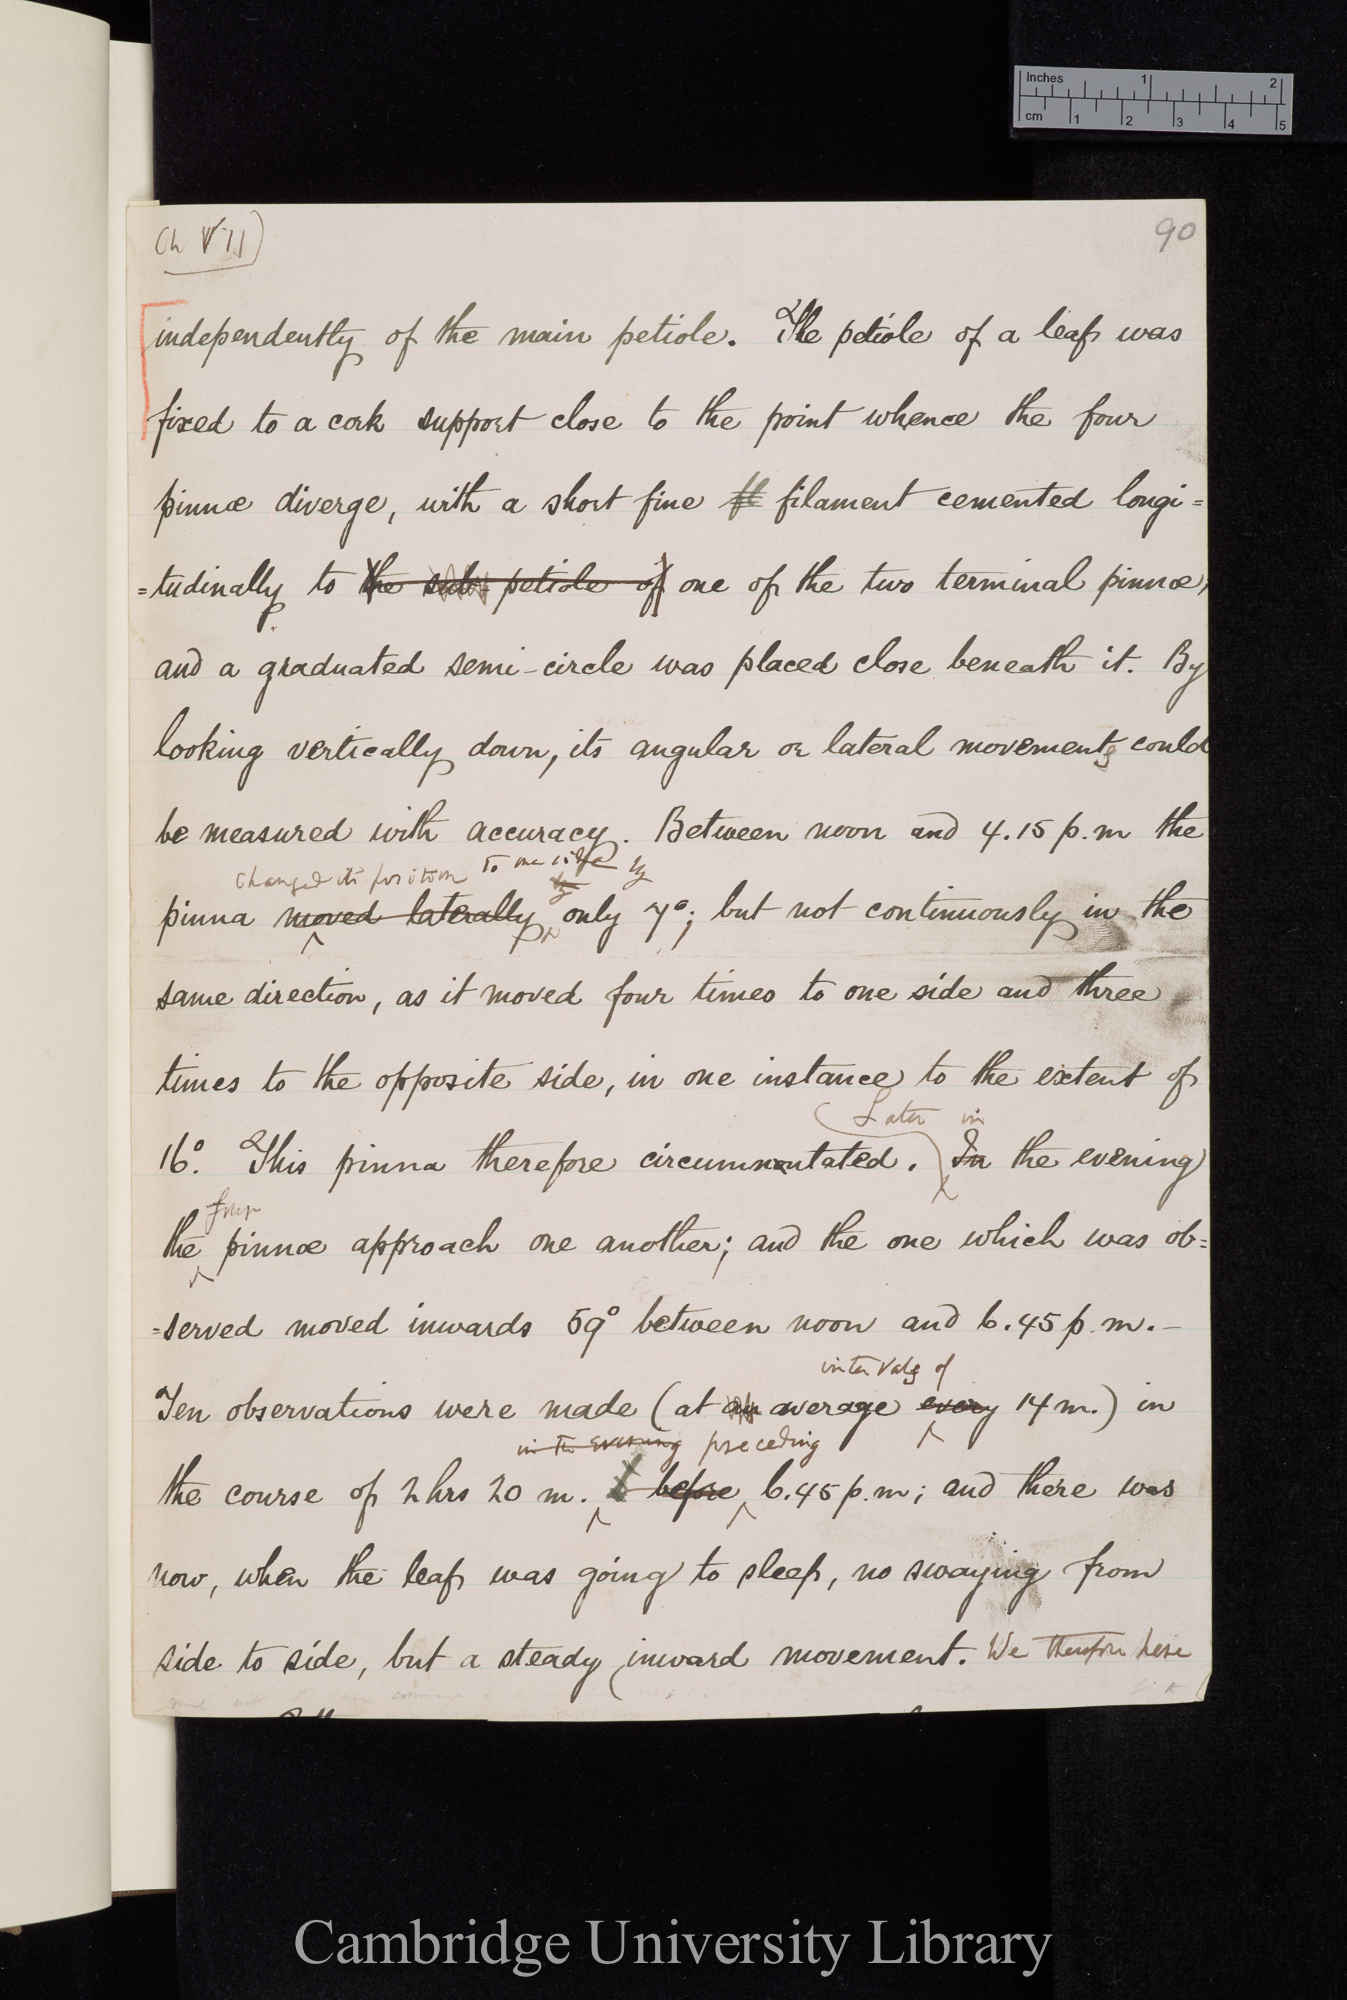 Inches 1 2
cm 1 2 3 4 5
Ch VII)
90
independently of the main petiole. The petiole of a leaf was
fixed to a cork support close to the point whence the four
pinnæ diverge, with a short fine fil filament cemented longi=
=tudinally to the sub-petiole of one of the two terminal pinnæ,
and a graduated semi-circle was placed close beneath it. By
looking vertically down, its angular or lateral movements could
be measured with accuracy. Between noon and 4.15 p.m the
changed its position to one side by
by
pinna moved laterally only 7°; but not continuously in the
same direction, as it moved four times to one side and three
times to the opposite side, in one instance to the extent of
Later in
16°. This pinna therefore circumnutated. In the evening
four
the pinnæ approach one another; and the one which was ob=
=served moved inwards 59° between noon and 6.45 p.m.—
intervals of
Ten observations were made (at an average every 14 m.) in
in the evening preceding
the course of 2 hrs 20 m. before 6.45 p.m; and there was
now, when the leaf was going to sleep, no swaying from
side to side, but a steady inward movement. We therefore here
Cambridge University Library